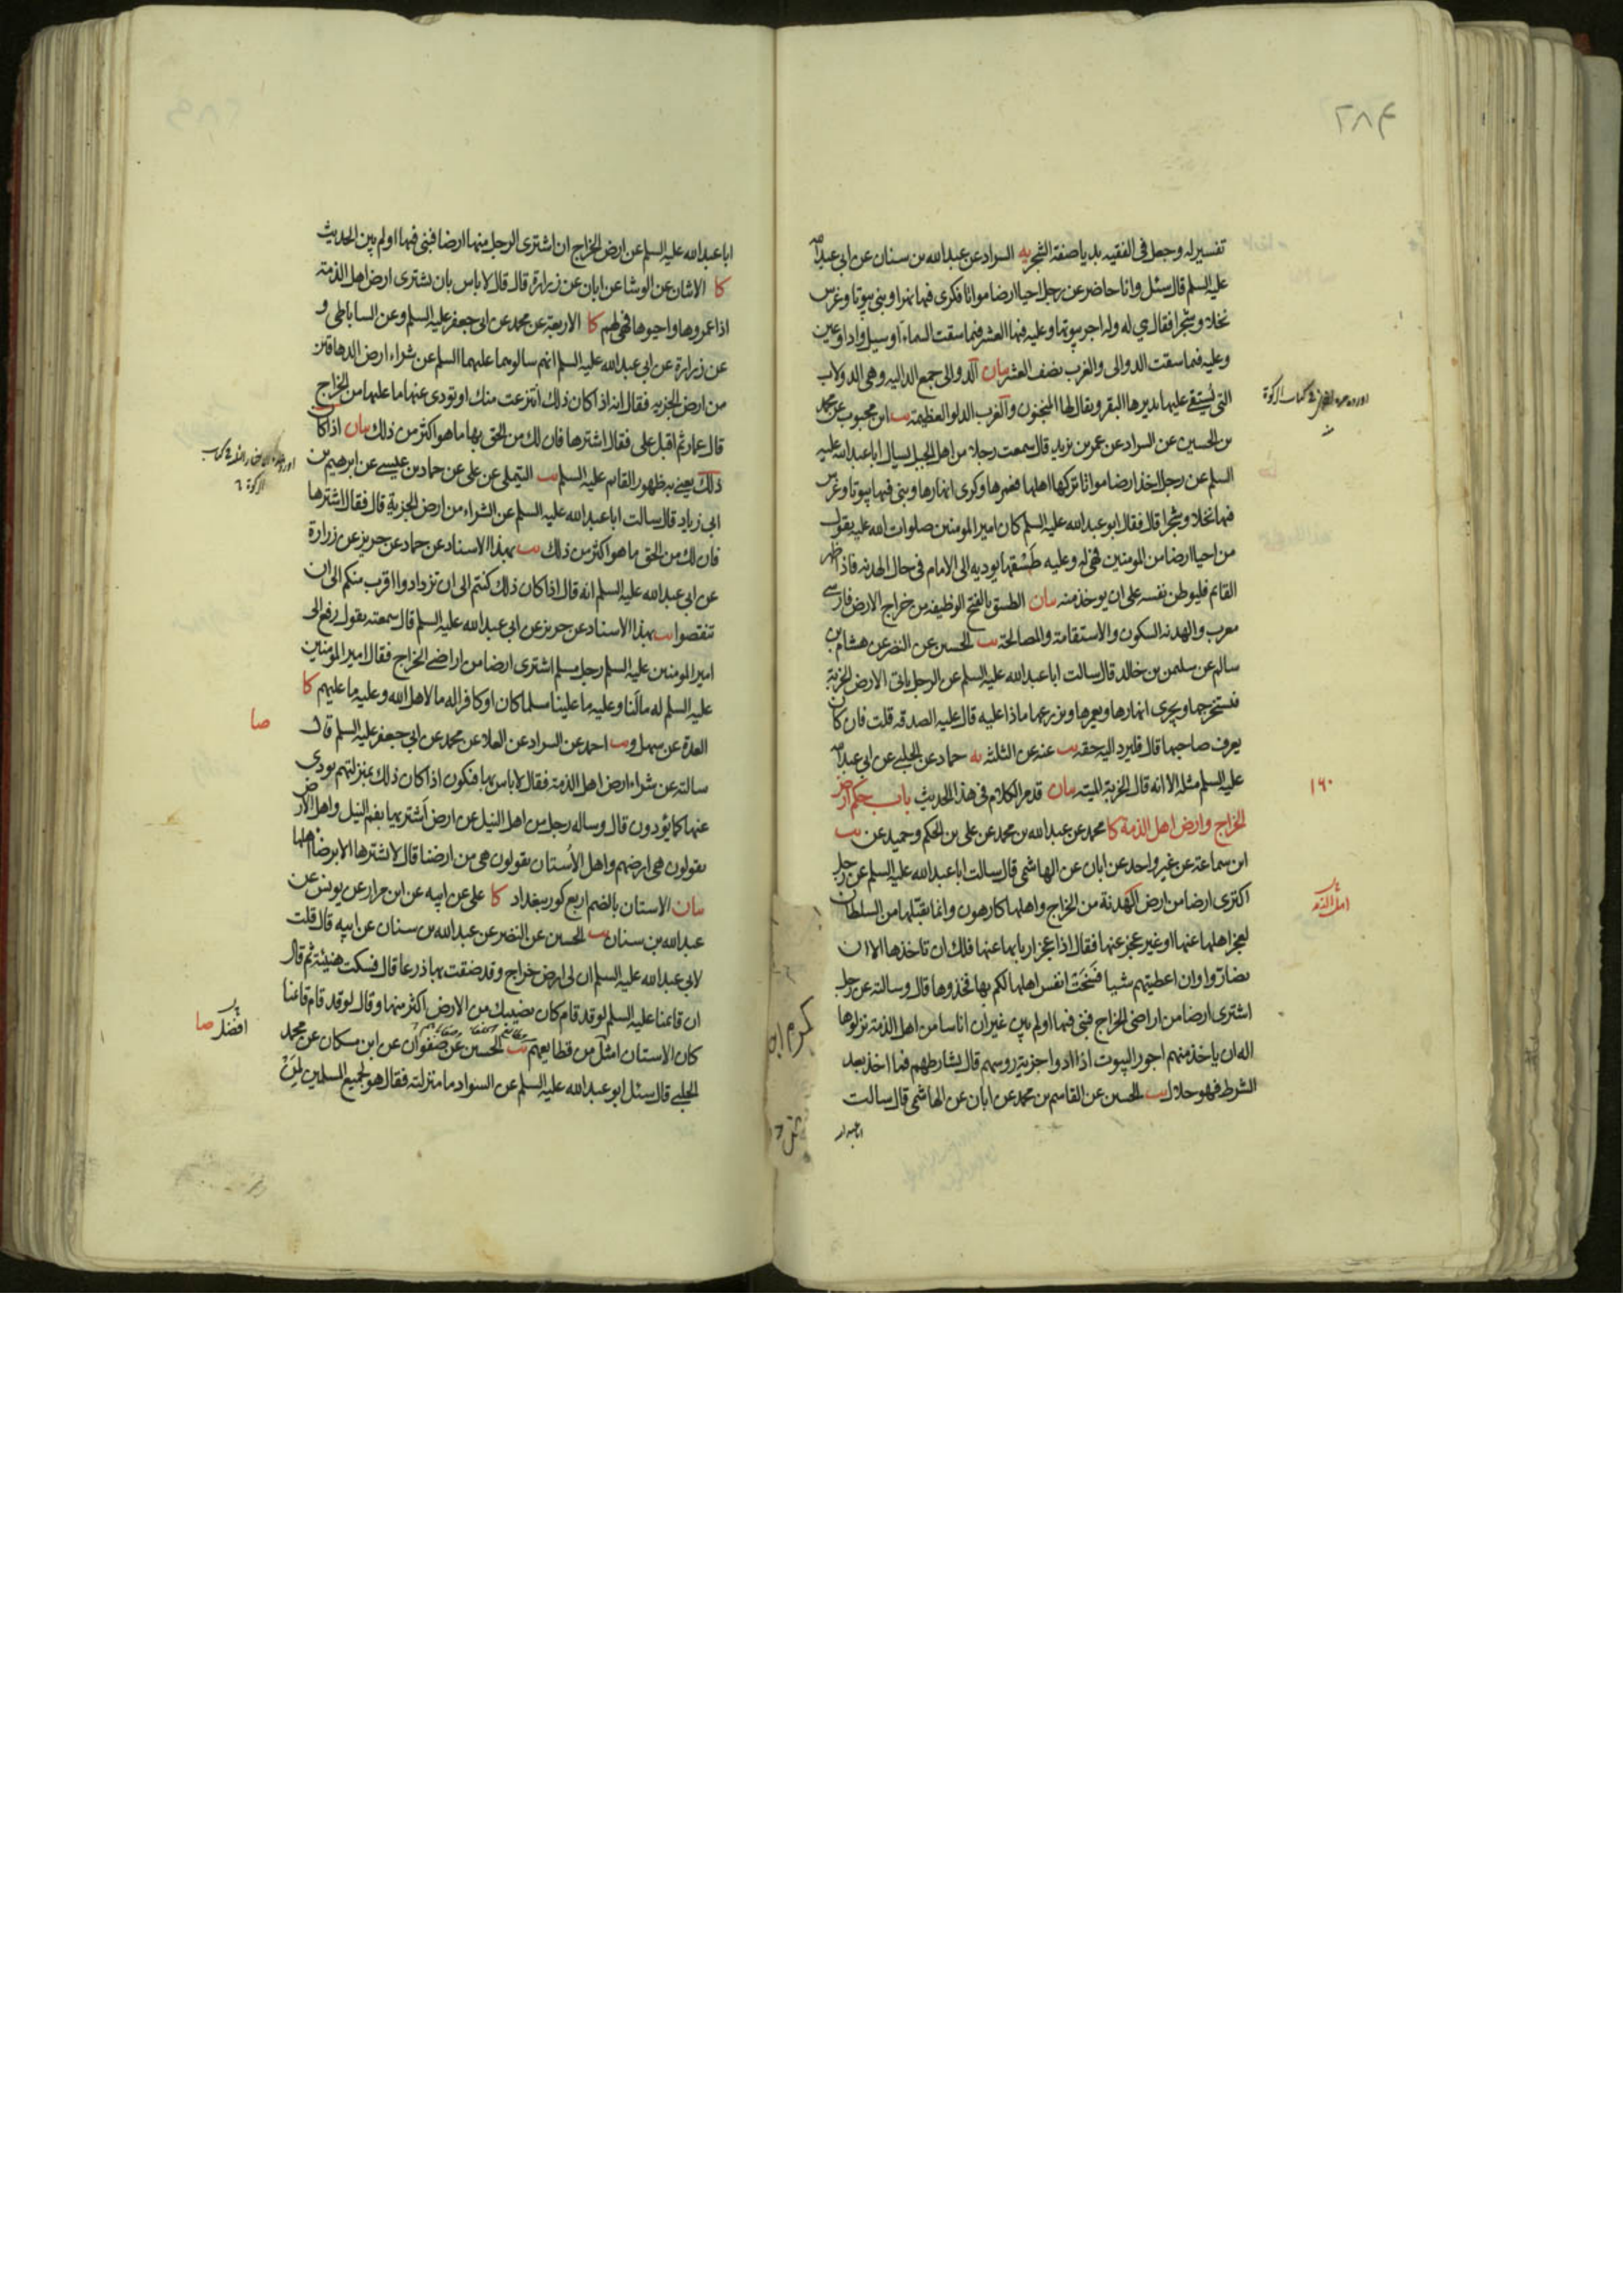 ٢٨٤
تفسير له وجعل في الفقيه بدياصفة الشجر يه السراد عن عبدالله بن سنان عن ابي عبدالله
عليه السلم قال سئل وانا حاضر عن رجل احيا ارضا مواتا فكرى فيها نهرا وبنى بيوتا وغرس
نخلا وشجرا فقال هي له وله اجر بيوتها وعليه فيها العشر فيما سقت السماء او سيل واد او عين
وعليه فيما سقت الدوالى والغرب نصف العشر بيان الدوالى جمع الداليه وهى الدولاب
التى يستقى عليها يديرها البقر ويقال لها المنجنون والغرب الدلو العظيمة يب ابن محبوب عن محمد
بن الحسين عن السراد عن عمر بن يزيد قال سمعت رجلا من اهل الجبل يسال ابا عبدالله عليه
السلم عن رجل اخذ ارضا مواتا تركها اهلها فعمرها وكرى انهارها وبنى فيها بيوتا وغرس
فيها نخلا وشجرا قال فقال ابو عبدالله عليه السلم كان امير المومنين صلوات الله عليه يقول
من احيا ارضا من المومنين فهي له وعليه طسقها يوديه الى الامام في حال الهدنه فاذا ظهر
القائم فليوطن نفسه على ان يوخذ منه بيان الطسق بالفتح الوظيفه من خراج الارض فارسى
معرب والهدنه السكون والاستقامة والمصالحة يب الحسين عن النضر عن هشام بن
سالم عن سليمن بن خالد قال سالت ابا عبدالله عليه السلم عن الرجل ياتى الارض الخربة
فيستخرجها ويجرى انهارها ويعمرها ويزرعها ماذا عليه قال عليه الصدقه قلت فان كان
يعرف صاحبها قال فليرد اليه حقه يب عنه عن الثلثه يه حماد عن الحلبي عن ابي عبدالله
عليه السلم مثله الا انه قال الخربة الميته بيان قد مر الكلام في هذا الحديث باب حكم ارض
الخراج وارض اهل الذمة كا محمد عن عبدالله بن محمد عن على بن الحكم وحميد عن يب
ابن سماعة عن غير واحد عن ابان عن الهاشمى قال سالت ابا عبدالله عليه السلم عن رجل
اكترى ارضا من ارض الهدنة من الخراج واهلها كارهون وانما يقبلها من السلطان
لعجز اهلها عنها او غير عجز عنها فقال اذا عجز اربابها عنها فلك ان تاخذها الا ان
يضاروا وان اعطيتهم شيئا فسخت انفس اهلها لكم بها فخذوها قال وسالته عن رجل
اشترى ارضا من اراضى الخراج فبنى فيها اولم يبن غير ان اناسا من اهل الذمة نزلوها
اله ان ياخذ منهم اجور البيوت اذا ادوا جزية روسهم قال يشارطهم فما اخذ بعد
الشرط فهو حلال يب الحسين عن القاسم بن محمد عن ابان عن الهاشمى قال سالت
١٦٠
اهل الذمة
ابا عبدالله عليه السلم عن ارض الخراج ان اشترى الرجل منها ارضا فبنى فيها اولم يبن الحديث
كا الاثنان عن الوشا عن ابان عن زرارة قال قال لاباس بان يشترى ارض اهل الذمة
اذا عمروها واحيوها فهي لهم كا الاربعة عن محمد عن ابى جعفر عليه السلم وعن الساباطى و
عن زرارة عن ابي عبدالله عليه السلم انهم سالوهما عليهما السلم عن شراء ارض الدهاقين
من ارض الجزيه فقال انه اذا كان ذلك انتزعت منك او تودى عنها ما عليها من الخراج
قال عمار ثم اقبل على فقال اشترها فان لك من الحق بها ما هو اكثر من ذلك بيان اذا كان
ذلك يعني به ظهور القايم عليه السلم يب التيملى عن على عن حماد بن عيسى عن ابرهيم بن
ابى زياد قال سالت ابا عبدالله عليه السلم عن الشراء من ارض الجزية قال فقال اشترها
فان لك من الحق ما هو اكثر من ذلك يب بهذا الاسناد عن حماد عن حريز عن زرارة
عن ابي عبدالله عليه السلم انه قال اذا كان ذلك كنتم الى ان تزدادوا اقرب منكم الى ان
تنقصوا يب بهذا الاسناد عن حريز عن ابي عبدالله عليه السلم قال سمعته يقول رفع الى
امير المومنين عليه السلم رجل مسلم اشترى ارضا من اراضى الخراج فقال امير المومنين
عليه السلم له مالنا وعليه ما علينا مسلما كان او كافرا له ما لاهل الله وعليه ما عليهم كا
العدة عن سهل و يب احمد عن السراد عن العلا عن محمد عن ابي جعفر عليه السلم قال
سالته عن شراء ارض اهل الذمة فقال لاباس بها فتكون اذا كان ذلك بمنزلتهم يودى
عنها كما يؤدون قال وساله رجل من اهل النيل عن ارض اشتريها بفم النيل واهل الارض
يقولون هي ارضهم واهل الأستان يقولون هي من ارضنا قال لا تشترها الا برضا اهلها
بيان الاستان بالضم اربع كور ببغداد كا على عن ابيه عن ابن مرار عن يونس عن
عبدالله بن سنان يب الحسين عن النضر عن عبدالله بن سنان عن ابيه قال قلت
لابي عبدالله عليه السلم ان لى ارض خراج وقد ضقت بها ذرعا قال فسكت هنيئة ثم قال
ان قائمنا عليه السلم لو قد قام كان نصيبك من الارض اكثر منها وقال لو قد قام قائمنا
كان الاستان امثل من قطايعهم يب الحسين عن صفوان عن ابن مسكان عن محمد
الحلبى قال سئل ابو عبدالله عليه السلم عن السواد ما منزلته فقال هو لجميع المسلمين لمن
صا
افضل صا